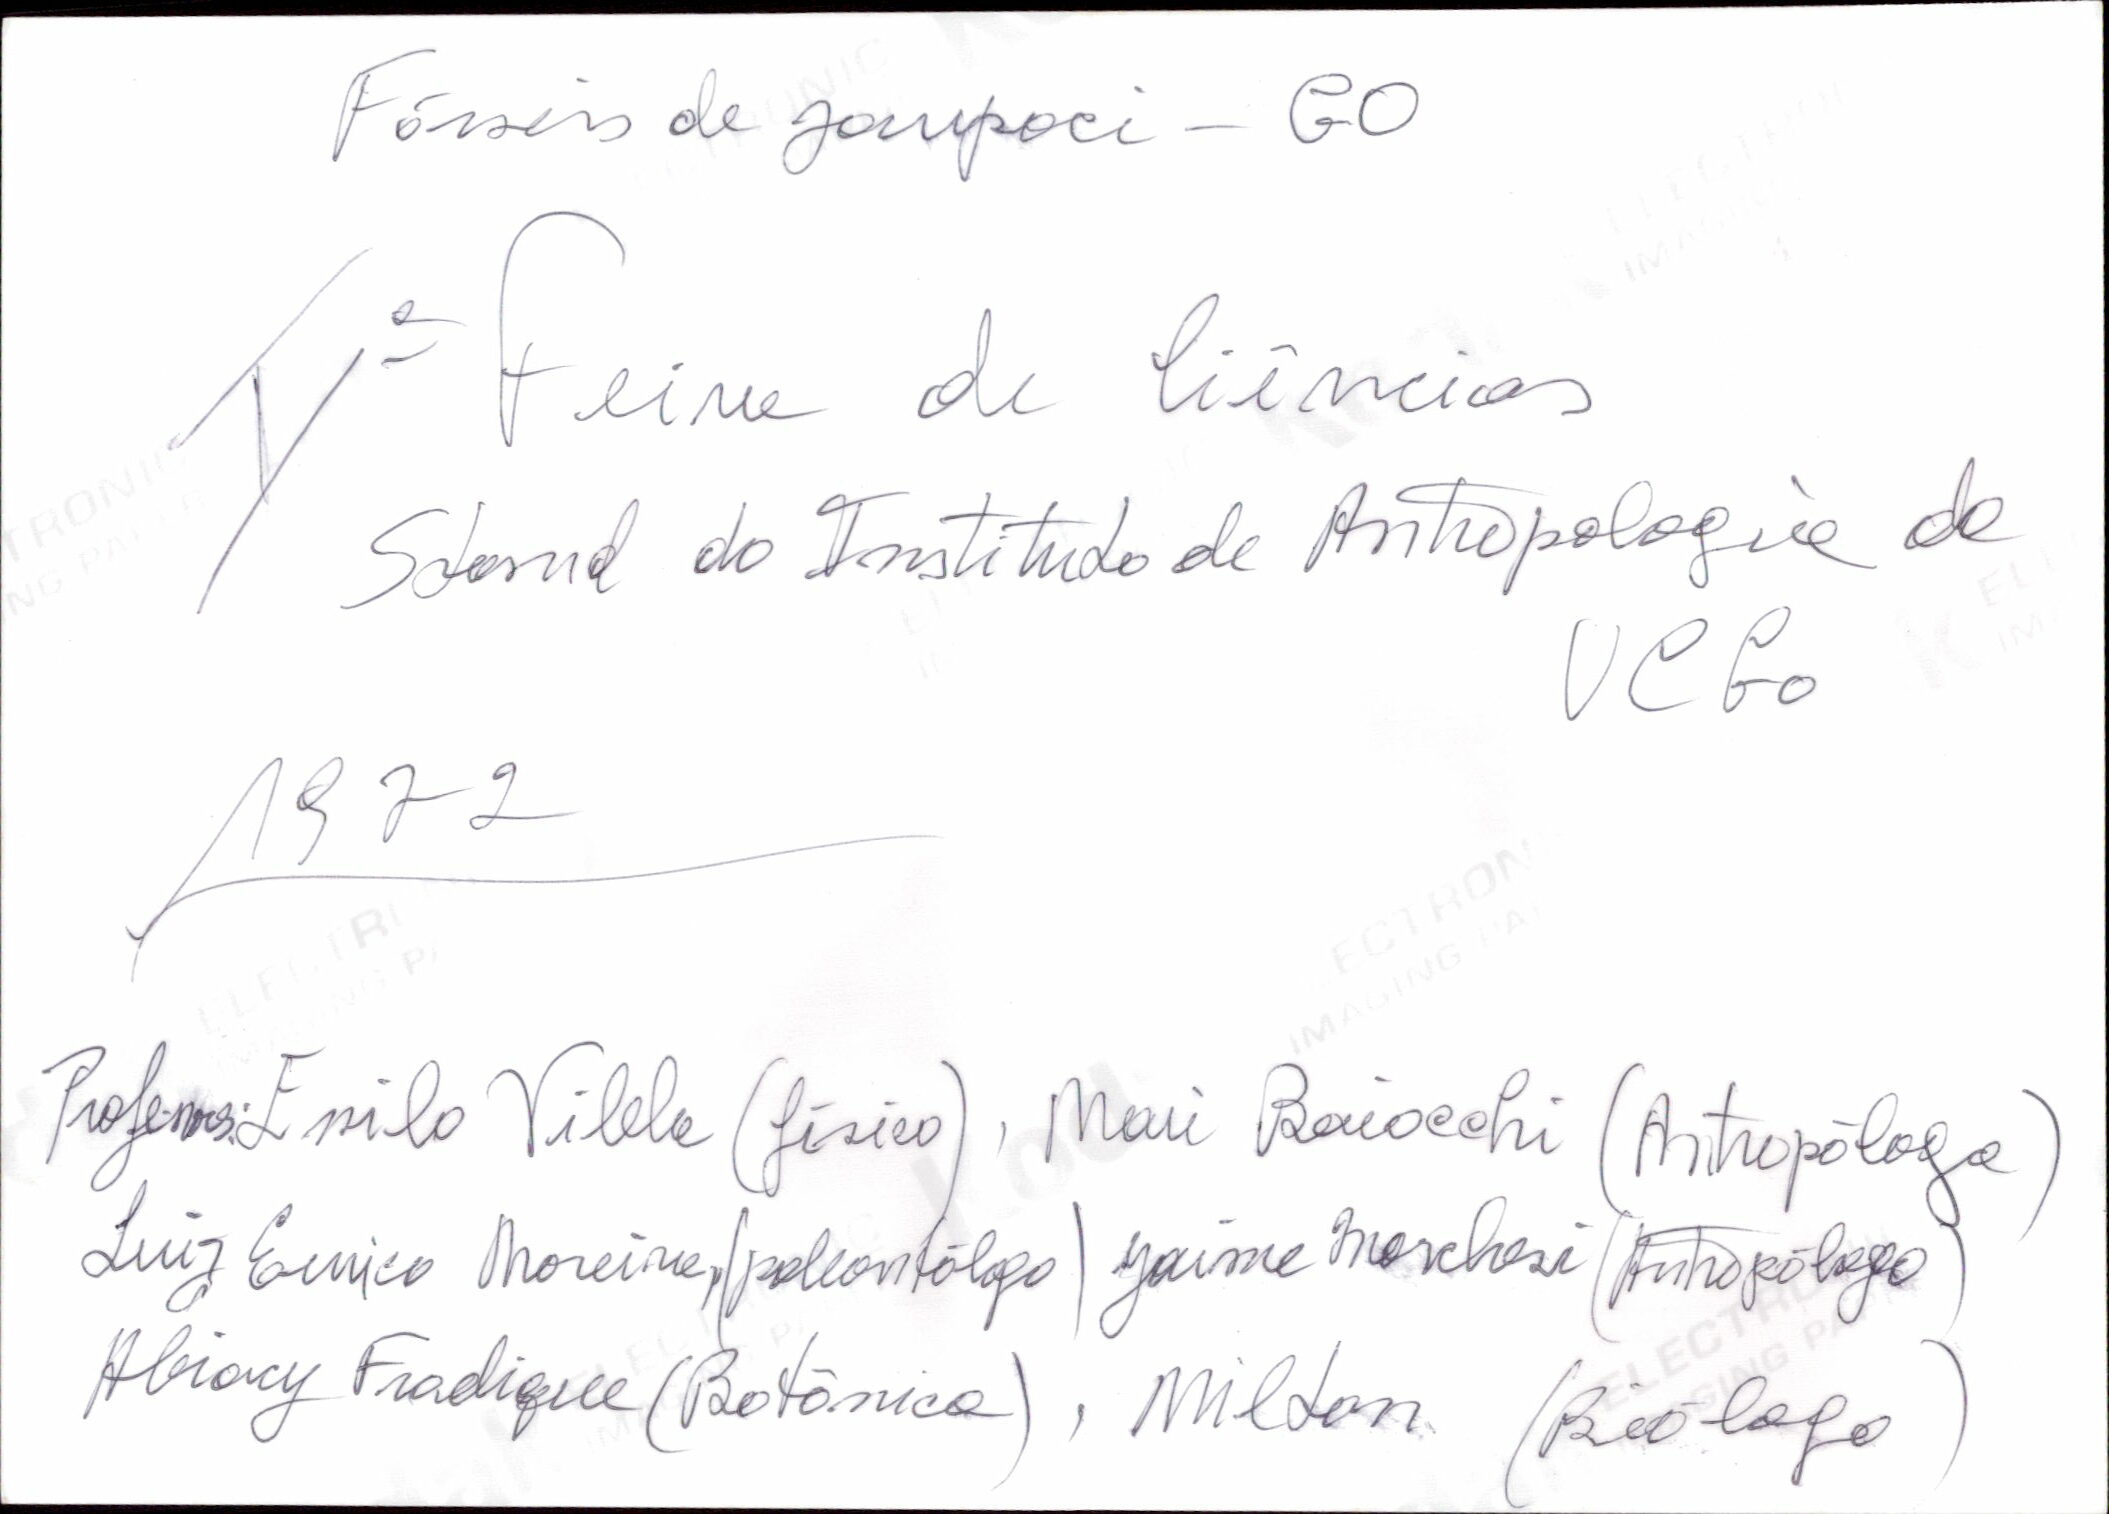 Fósseis de Jaupaci – GO
Vª Feira de Ciências
Stand do Instituto de Antropologia da
UCGo
1972
Professores: Ésilo Vilela (físico), Mari Baiocchi (Antropóloga)
Luiz Eurico Moreira, (paleontólogo) Jaime Marchesi (Antropólogo)
Abiacy Fradique (Botânica), Milton (Biólogo)